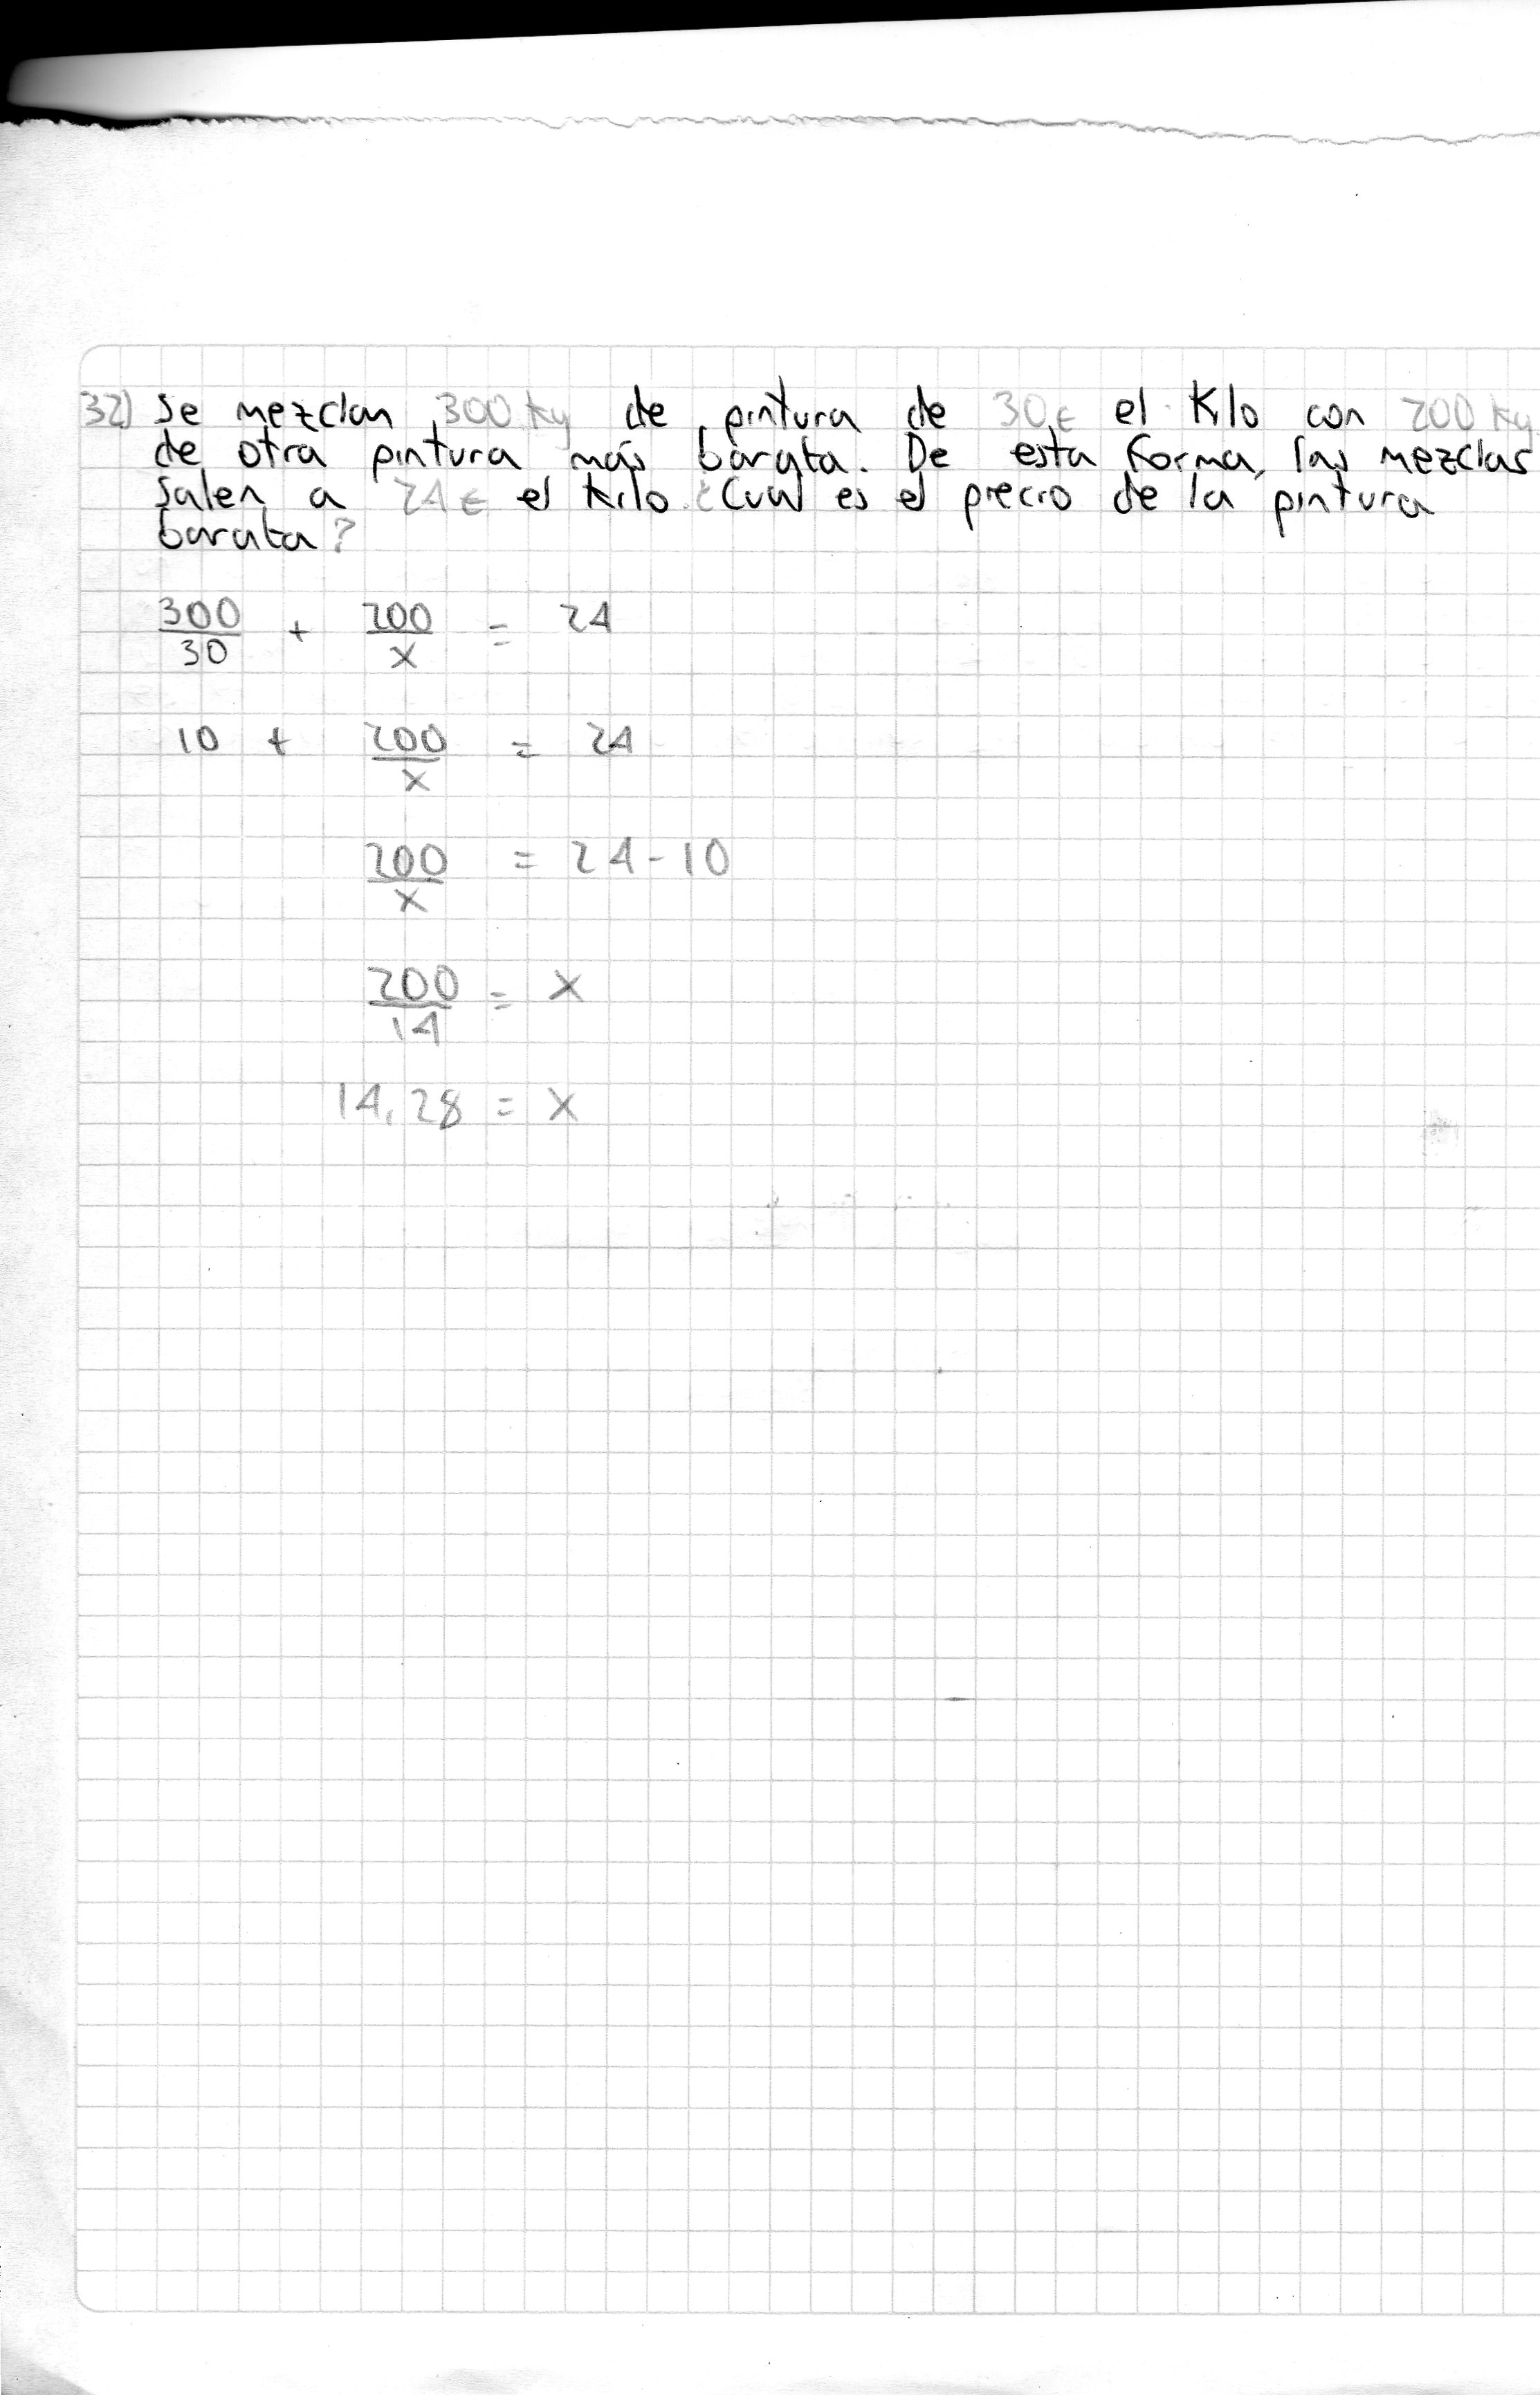 32) Se mezclan 300 kg de pintura de 30€ el Kilo con 200 kg
de otra pintura más barata. De esta forma, las mezclas
salen a 24€ el kilo. ¿Cual es el precio de la pintura
barata?
300/30 + 200/x = 24
10 + 200/x = 24
200/x = 24-10
200/14 = x
14,28 = x